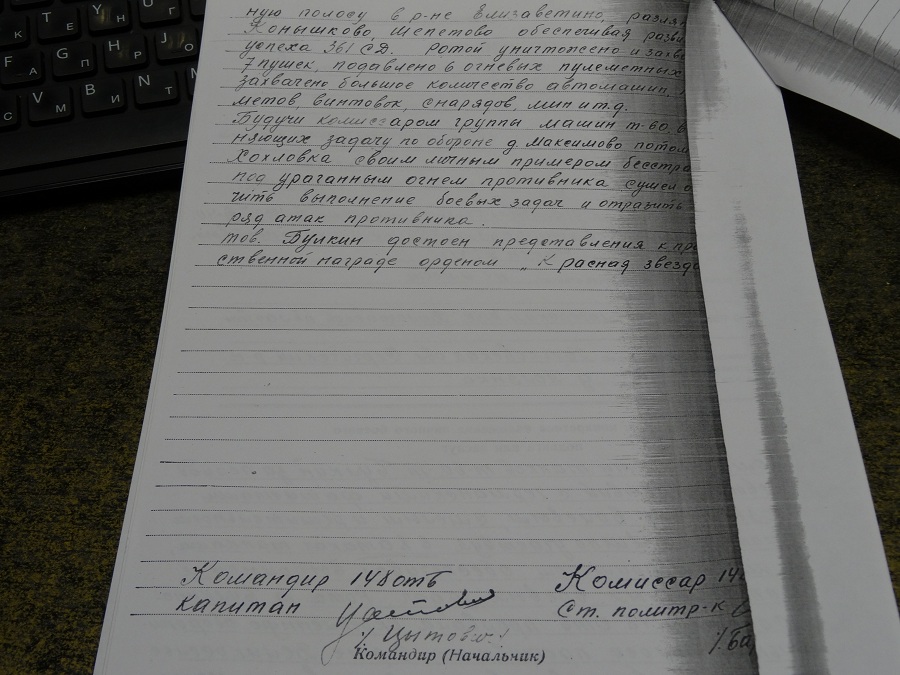 ную полосу в р-не Елизаветино
Конышково, Шепетово обеспечивая
успеха 361 СД. Ротой уничтожено и
7 пушек, подавлено 6 огневых пулеметных
захвачено большое количество автомашин,
метов, винтовок, снарядов, мин и т.д.
Будучи комиссаром группы машин Т-60,
няющих задачу по обороне д. Максимово
Хохловка своим личным примером
под ураганным огнем противника сумел о
чить выполнение боевых задач и отразить
ряд атак противника.
тов. Булкин достоен представления к
ственной награде орденом „Красная звезда
Командир 148 отб Комиссар 14
капитан Ст. политр-к
/. Цытович/ /. Ба
Командир (Начальник)
К Т Е У Н Г
F А G П H Р J О
С V М B И N Т